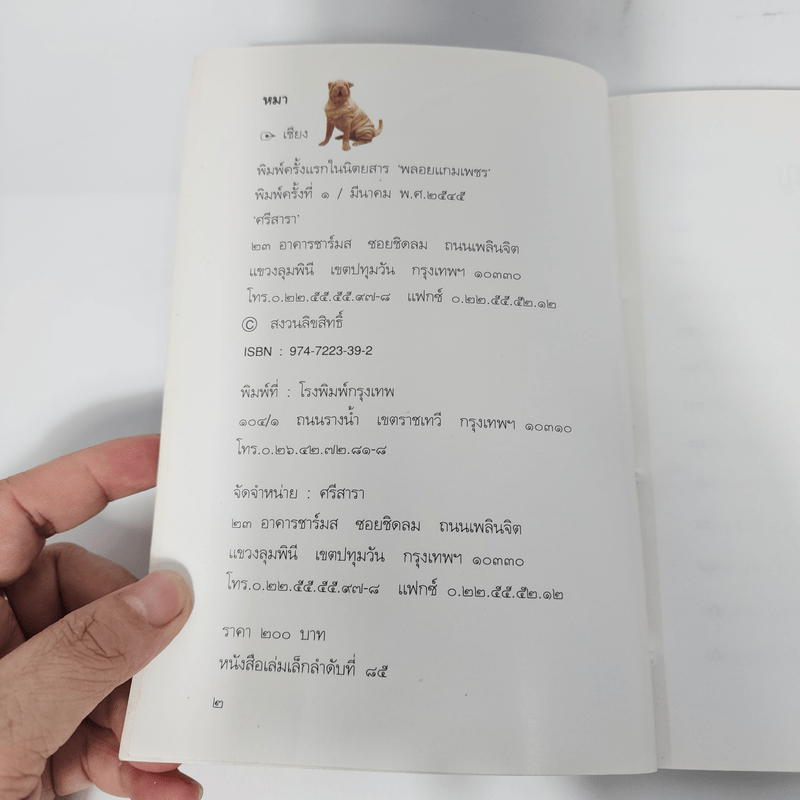 หมา
เชียง
พิมพ์ครั้งแรกในนิตยสาร 'พลอยแกมเพชร'
พิมพ์ครั้งที่ ๑ / มีนาคม พ.ศ.๒๕๔๕
'ศรีสารา'
๒๓ อาคารชาร์มส ซอยชิดลม ถนนเพลินจิต
แขวงลุมพินี เขตปทุมวัน กรุงเทพฯ ๑๐๓๓๐
โทร.๐.๒๒.๕๕.๕๕.๙๗-๘ แฟกซ์ ๐.๒๒.๕๕.๕๒.๑๒
© สงวนลิขสิทธิ์
ISBN : 974-7223-39-2
พิมพ์ที่ : โรงพิมพ์กรุงเทพ
๑๐๔/๑ ถนนรางน้ำ เขตราชเทวี กรุงเทพฯ ๑๐๓๑๐
โทร.๐.๒๖.๔๒.๗๒.๘๑-๘
จัดจำหน่าย : ศรีสารา
๒๓ อาคารชาร์มส ซอยชิดลม ถนนเพลินจิต
แขวงลุมพินี เขตปทุมวัน กรุงเทพฯ ๑๐๓๓๐
โทร.๐.๒๒.๕๕.๕๕.๙๗-๘ แฟกซ์ ๐.๒๒.๕๕.๕๒.๑๒
ราคา ๒๐๐ บาท
หนังสือเล่มเล็กลำดับที่ ๘๕
๒